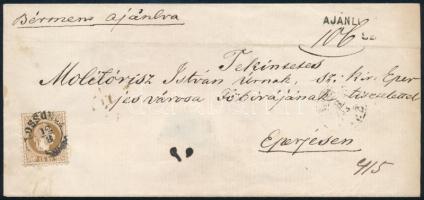 Bérmen ajánlva
AJÁNL
106
Tekintetes
Moletórisz István úrnak, sz. kir. Eper
jes városa Főbírájának tisztelettel
Eperjesen
415